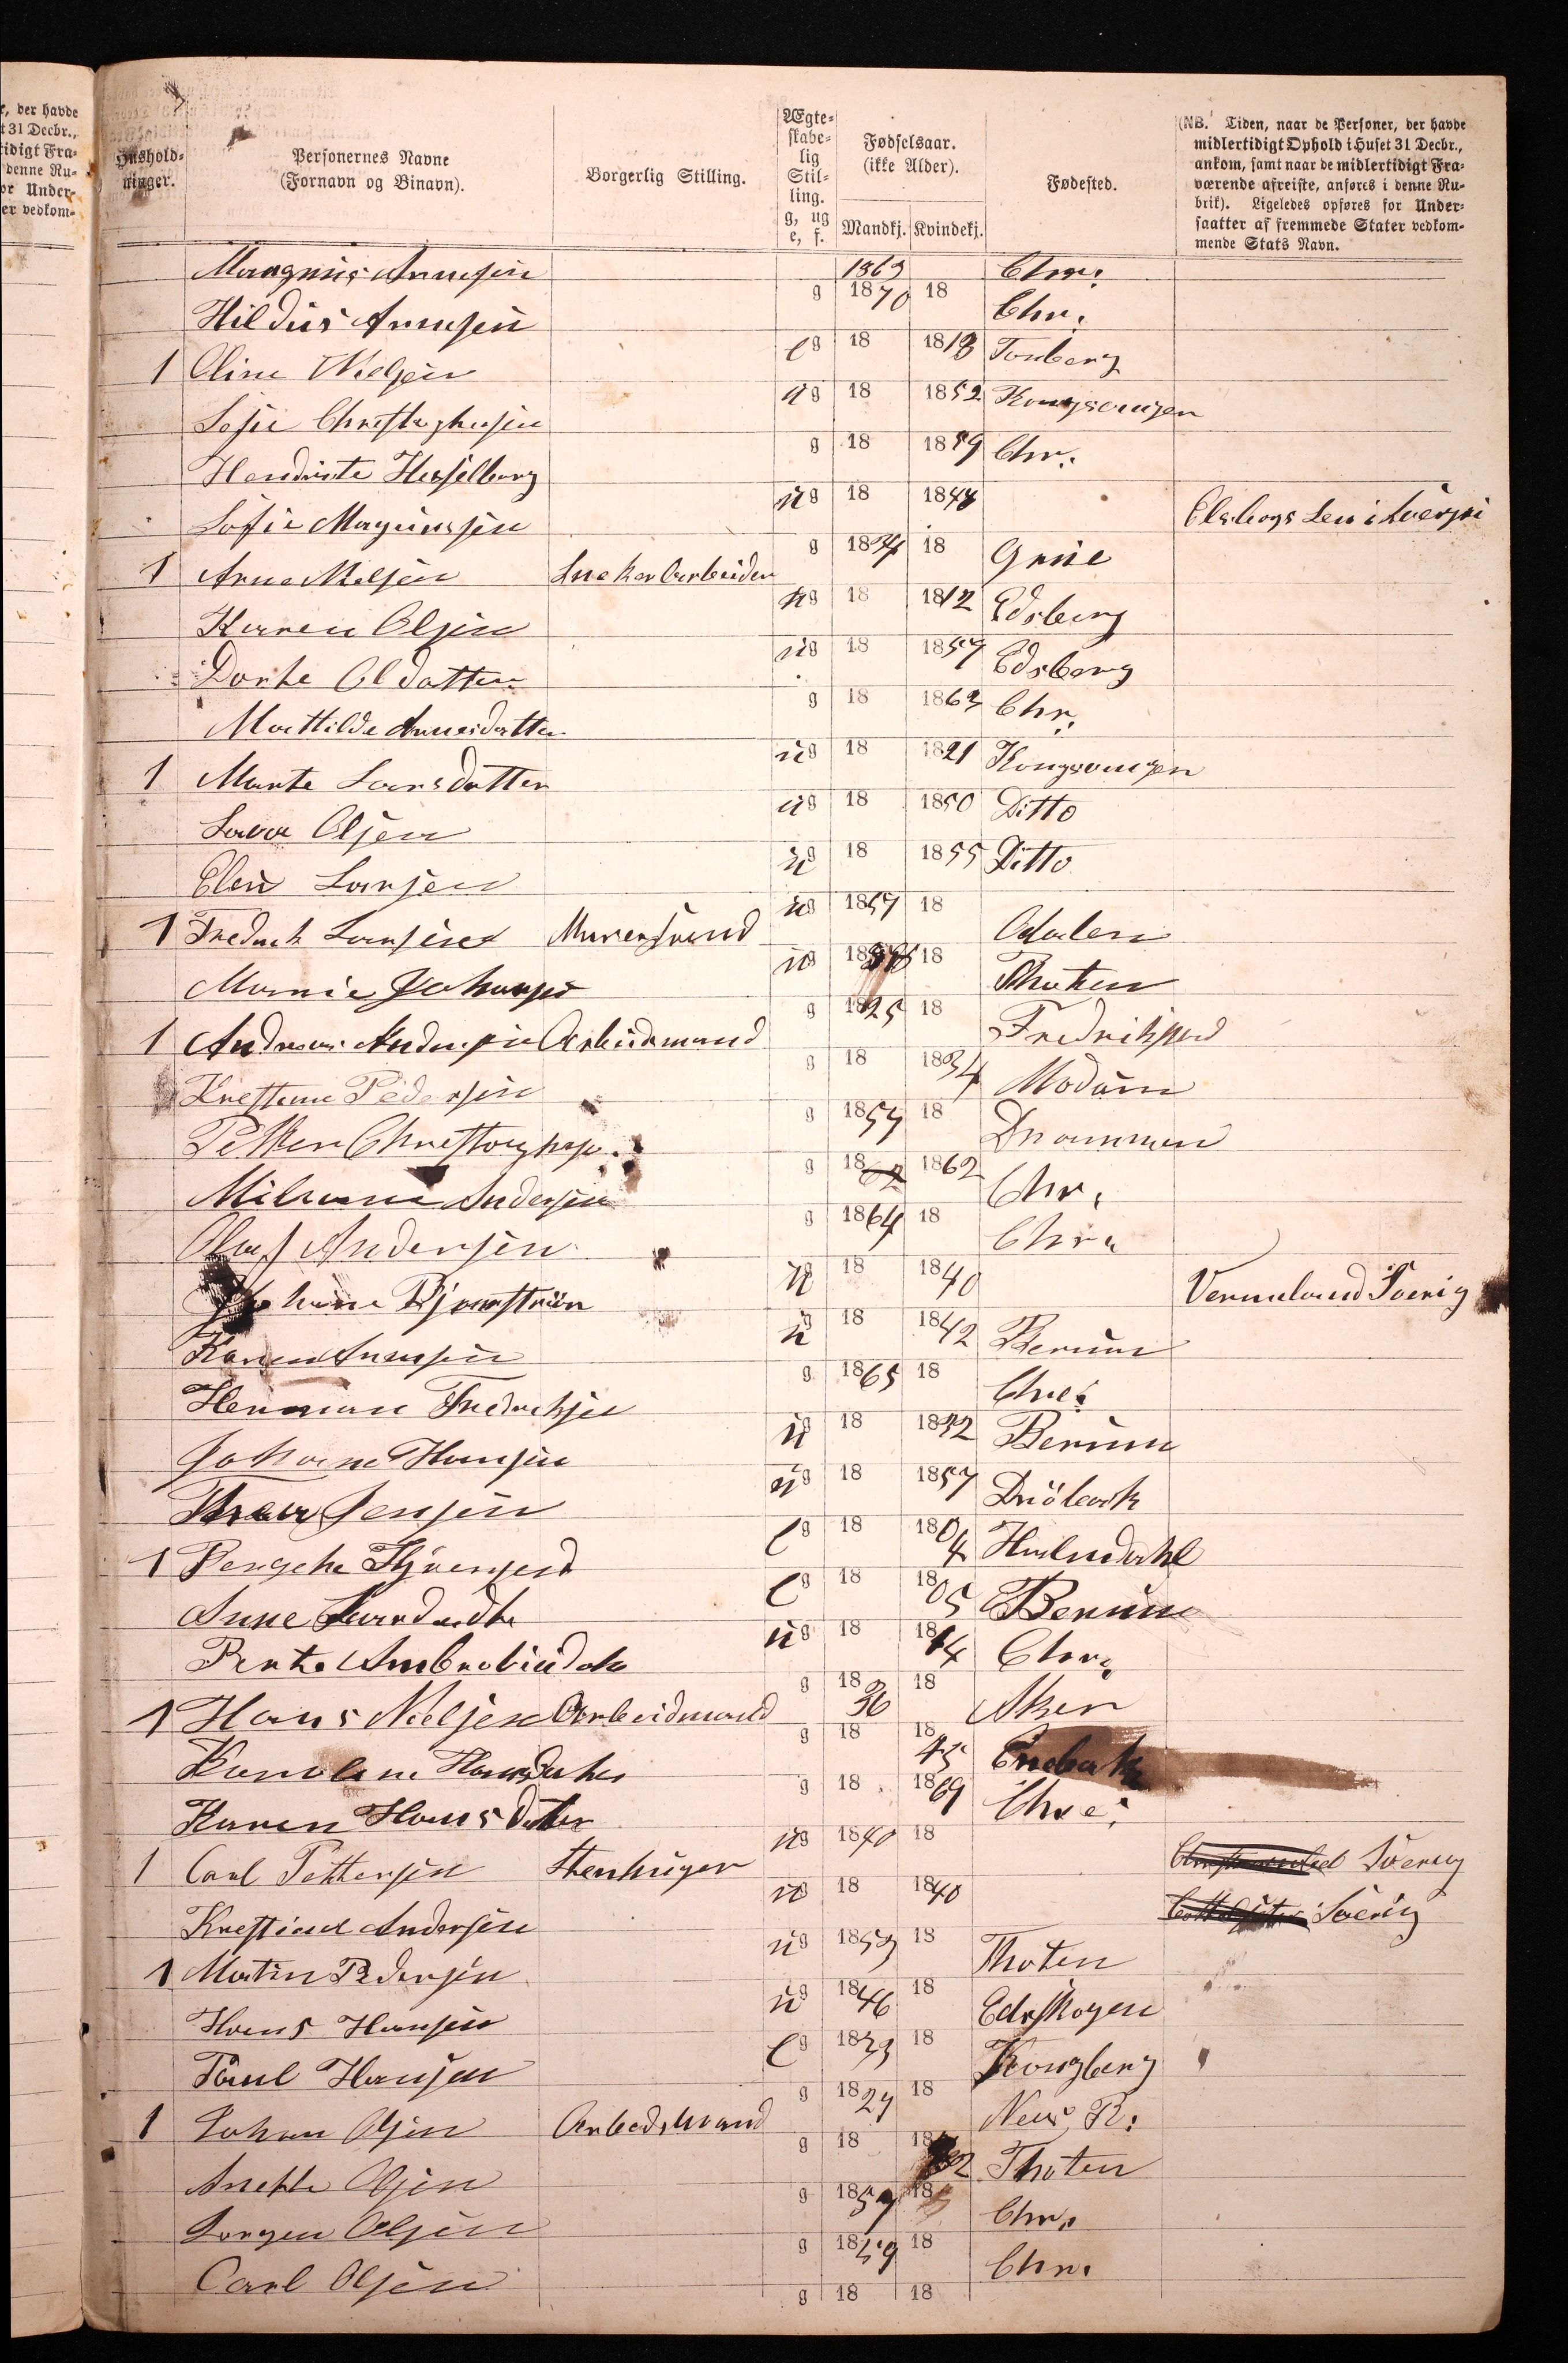 r, der havde
t 31 Decbr.,
tidigt Fra-
denne Ru-
or Under-
er vedkom-
Hushold-
ninger.
Personernes Navne
(Fornavn og Binavn).
Borgerlig Stilling.
Ægte-
skabe-
lig
Stil-
ling.
g, ug
e, f.
Fødselsaar.
(ikke Alder).
Mandkj. Kvindekj.
Fødested.
(NB. Tiden, naar de Personer, der havde
midlertidigt Ophold i Huset 31 Decbr.,
ankom, samt naar de midlertidigt Fra-
værende afreiste, anføres i denne Ru-
brik). Ligeledes opføres for Under-
saatter af fremmede Stater vedkom-
mende Stats Navn.
Magnus Arnesen 1863 Chr.
Hildus Arnesen g 1870 18 Chr.
1 Oline Nielsen e g 18 18 Tonberg
Sofie Christophersen u g 18 1852 Kongsvingen
Hendrikte Hesselberg g 18 1859 Chr.
Sofie Magnussen u g 18 1844
1 Arne Nielsen Sneker Arbeider g 18 18 Grue
Karen Olsen g 18 1812 Edsberg
Dorte Oldatter u g 18 1857 Edsberg
Mathilde Arnesdatter g 18 1863 Chr.
1 Marte Larsdatter u g 18 1821 Kongsvingen
Lava Olsen u g 18 1850 Ditto
Elen Larsen u g 18 1855 Ditto
1 Fredrik Larsen Murersvend u g 1857 18 Odalen
Marnie Johansen u g 18 18 Thoten
1 Andreas Andersen Arbeidmand g 1825 18 Fredrikstad
Krestine Pedersen g 18 1834 Modum
Petter Christophers. g 1857 18 Drammen
Andersen g 18 1862 Chr.
Olaf Andersen g 1864 18 Chr.
Bjørnstrøm u g 18 1840 Vermeland Sverig
Karen Arnesen u g 18 1842 Berum
Herman Fredriksen g 1865 18 Chr.
Johane Hansen u g 18 18 Berum
Thea Jensen u g 18 1857 Drøbak
1 e g 18 1804
Anne e g 18 1805 Berum
Berte u g 18 18 Chr.
1 Hans Nielsen Arbeidmand g 1836 18 Aker
Karoline Hansdatter g 18 1845 Enebak
Karen Hansdatter g 18 1869 Chr.
1 Carl Pettersen Stenhuger u g 1840 18 Sverig
Krestian Andersen u g 18 1840 Sverig
1 Martin Pedersen u g 1853 18 Thoten
Hans Hansen u g 1846 18 Edsskogen
Paul Hansen e g 1833 18 Kongberg
1 Johan Olsen Arbedsmand g 18 18 Nes R.
Anethe Olsen g 18 18 Thoten
Jorgen Olsen g 1857 18 Chr.
Carl Olsen g 1859 18 Chr.
g 18 18